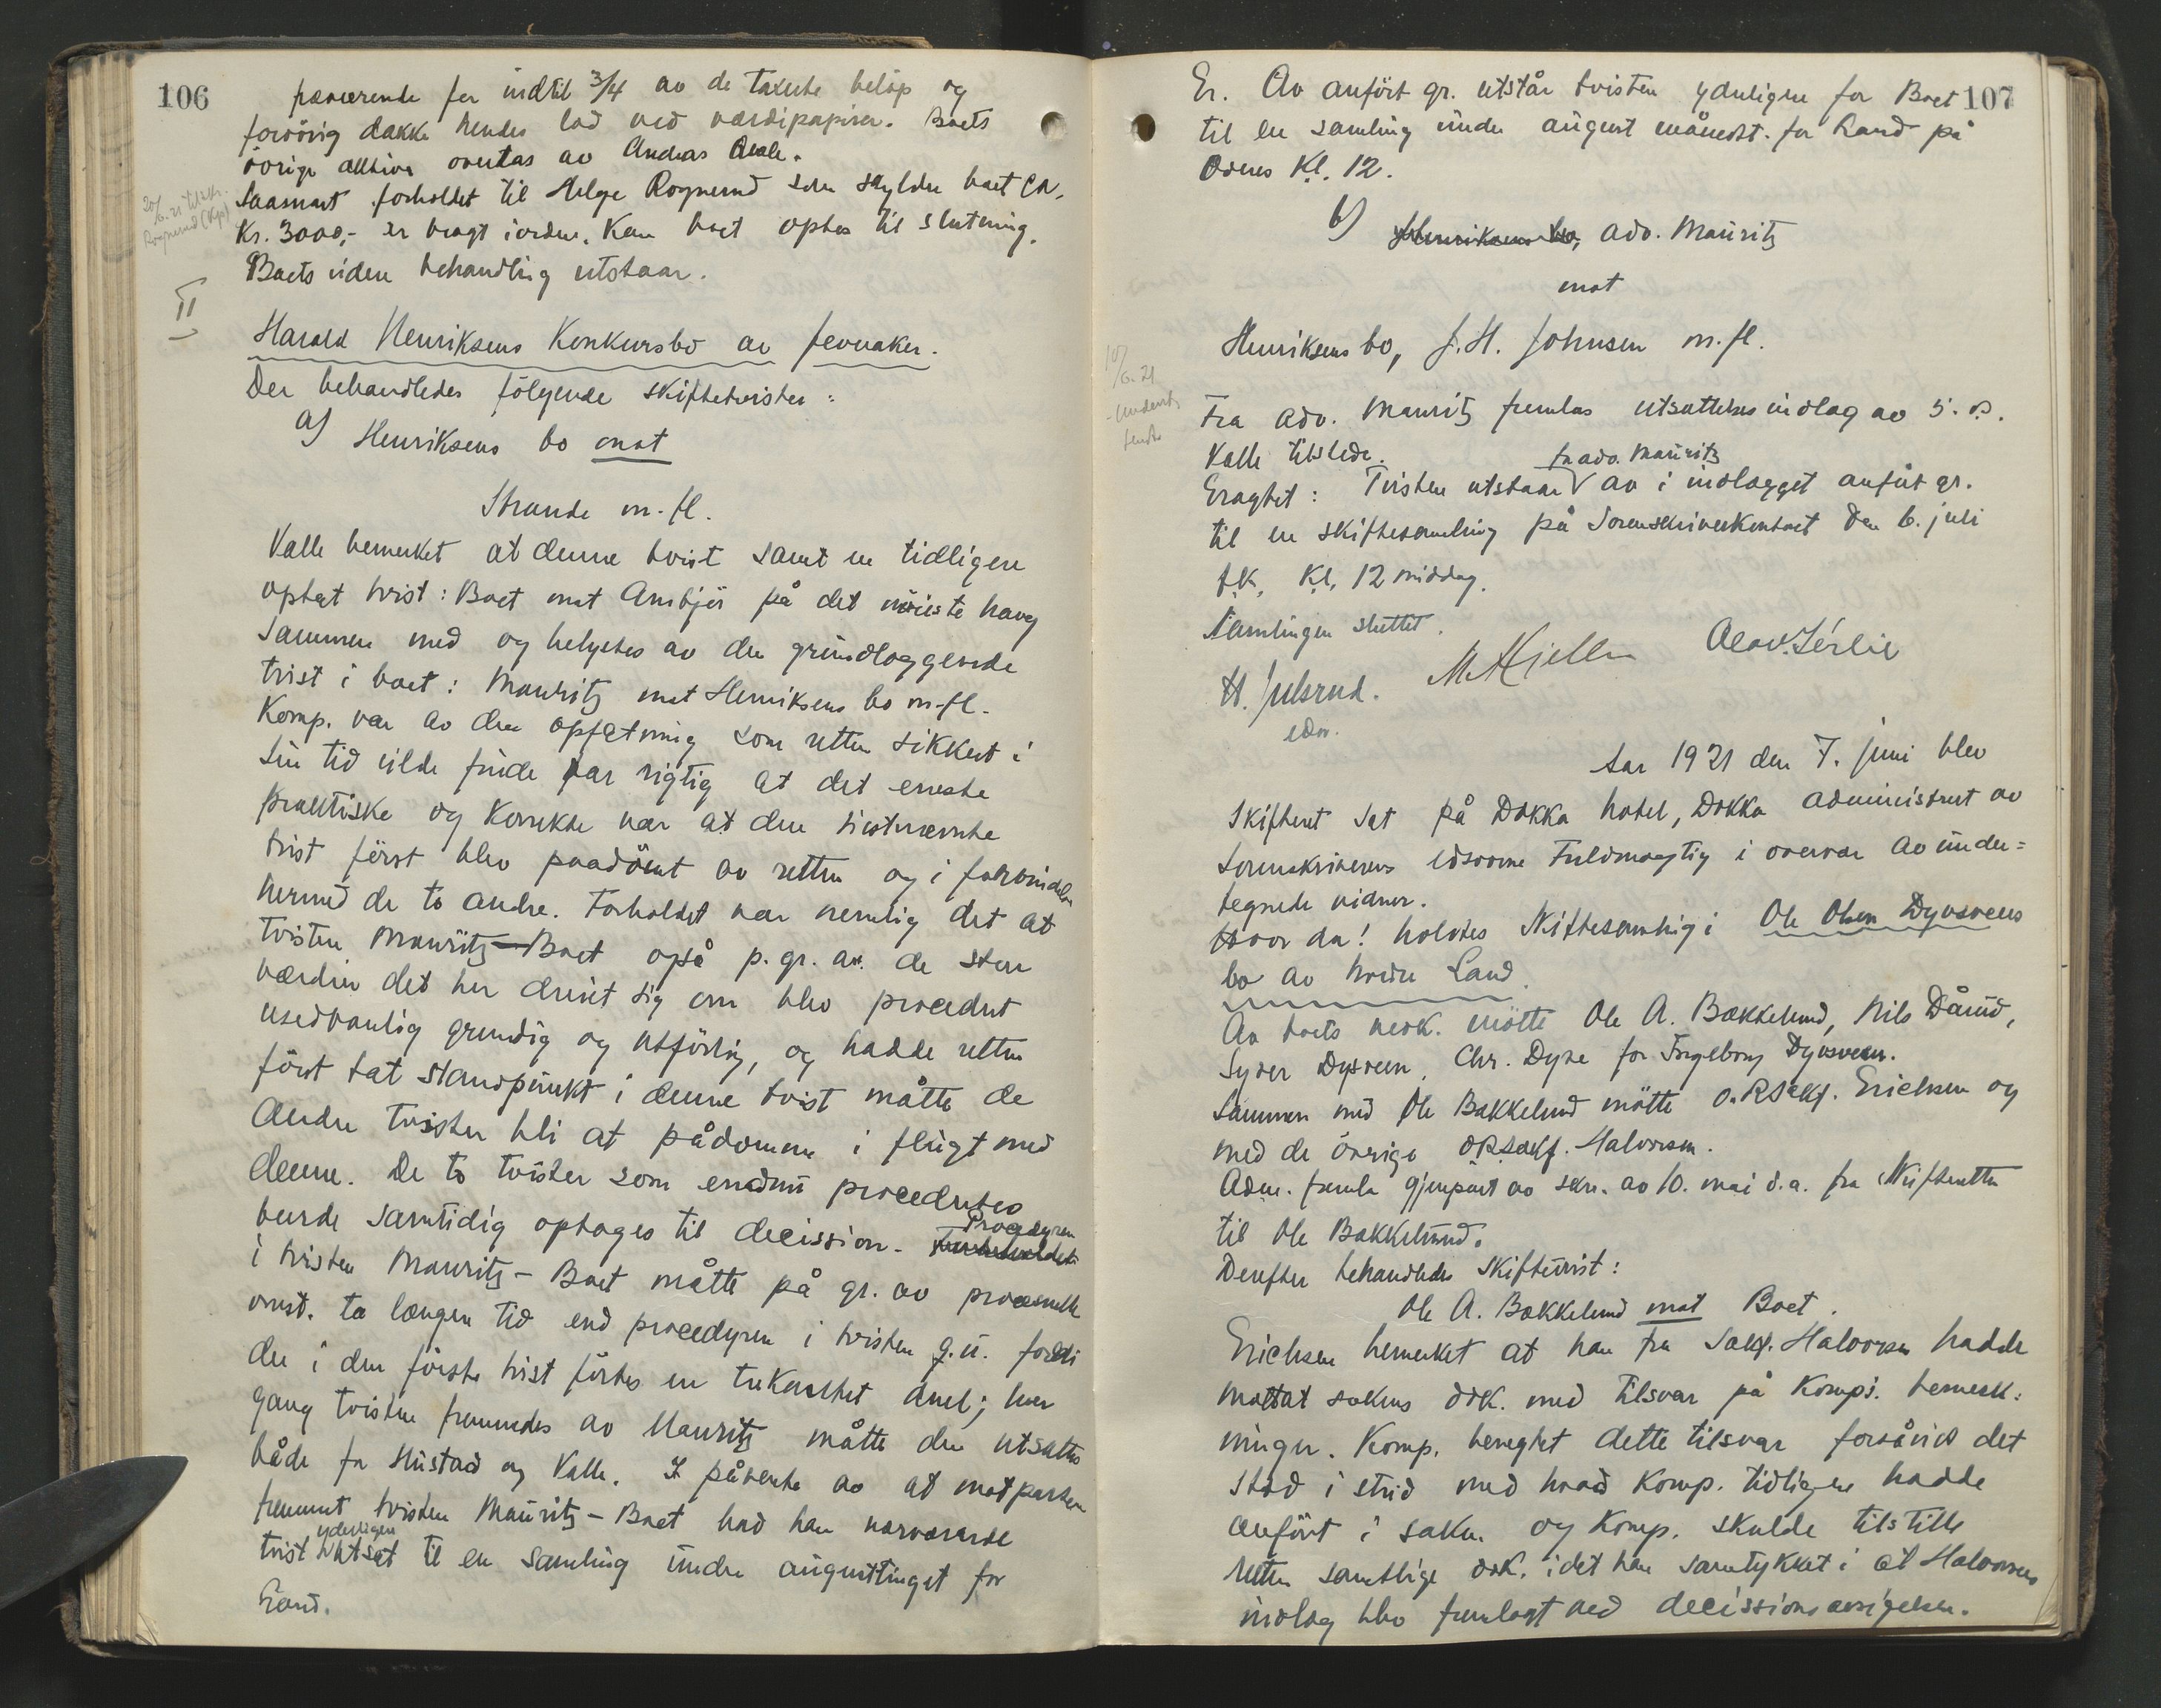 106
for indtil 3/4 av de takserte beløp og
forøvrig dække hendes lod ved værdipapirer. Boets
øvrige aktiva overtas av Andreas
Saasnart forholdet til Helge Rognerud som skylder boet ca.
Kr. 3000,- er bragt iorden, kan boet optas til slutning.
Boets videre behandling utstaar.
20/6.21 tilskr.
Rognerud (Kp)
II
Harald Henriksens Konkursbo av Jevnaker.
Der behandledes følgende skiftetvister:
a) Henriksens bo mot
Strande m.fl.
Valle bemerket at denne tvist samt en tidligere
optat tvist: Boet mot Ansbjør på det nøieste hang
sammen med og belystes av den grundlæggende
tvist i boet: Mauritz mot Henriksens bo m.fl.
Komp. var av den opfatning som retten sikkert i
sin tid vilde finde var rigtig at det eneste
praktiske og korrekte var at den sistnævnte
tvist først blev paadømt av retten og i forbindelse
hermed de to andre. Forholdet var nemlig det at
tvisten Mauritz - Boet også p. gr. av de store
værdier det her dreiet sig om blev procedert
usedvanlig grundig og utførlig, og hadde retten
først tat standpunkt i denne tvist måtte de
andre tvister bli at pådømme i flugt med
denne. De to tvister som endnu procedertes
burde samtidig optages til decission. Procedyren
i tvisten Mauritz - Boet måtte på gr. av processuelle
omst. ta længere tid end procedyren i tvisten g.u. fordi
der i den første tvist førtes en trekantet duel; hver
gang tvisten fremmedes av Mauritz måtte den utsættes
både for Hustad og Valle. I påvente av at motparten
fremmet tvisten Mauritz - Boet bad han nærværende
tvist yderligere utsat til en samling under augusttinget for
Land.
107
Er. Av anført gr. utstår tvisten yderligere for Boet
til en samling under august måneds t. for Land på
Odnes Kl. 12.
b) Henriksens bo, adv. Mauritz
mot
Henriksens bo, J.H. Johnsen m.fl.
10/6.21
Fra adv. Mauritz fremlas utsættelsesindlæg av 5. ds.
Valle tilstede.
for adv. Mauritz
Eragtet: Tvisten utstaar av i indlægget anført gr.
til en skiftesamling på Sorenskriverkontoret den 6. juli
f.k. Kl. 12 middag.
Samlingen sluttet.
H. Julsrud. M Kjelle Olav Lerlie
edsv.
Aar 1921 den 7. juni blev
skifteret sat på Dokka hotel, Dokka administrert av
sorenskriverens edsvorne Fuldmægtig i overvær av under=
tegnede vidner.
Hvor da! holdtes Skiftesamling i Ole Olsen Dyvsveens
bo av Nordre Land.
Av boets vedk. møtte Ole A. Bakkelund, Nils Dårud,
Syver Dysveen, Chr. Dyre for Ingeborg Dyvsveen.
Sammen med Ole Bakkelund møtte O.R.sakf. Erichsen og
med de øvrige O.R.sakf. Halvorsen.
Adm. fremla gjenpart av skr. av 10. mai d.a. fra Skifteretten
til Ole Bakkelund.
Derefter behandledes Skiftetvist:
Ole A. Bakkelund mot Boet.
Erichsen bemerket at han fra Sakf. Halvorsen hadde
mottat sakens dok. med tilsvar på Komp's. bemerk=
ninger. Komp. benegtet dette tilsvar forsåvidt det
stod i strid med hvad Komp. tidligere hadde
anført i saken og Komp. skulde tilstille
retten samtlige dok. idet han samtykket i at Halvorsens
indlæg blev fremlagt ved decissionsavsigelsen.